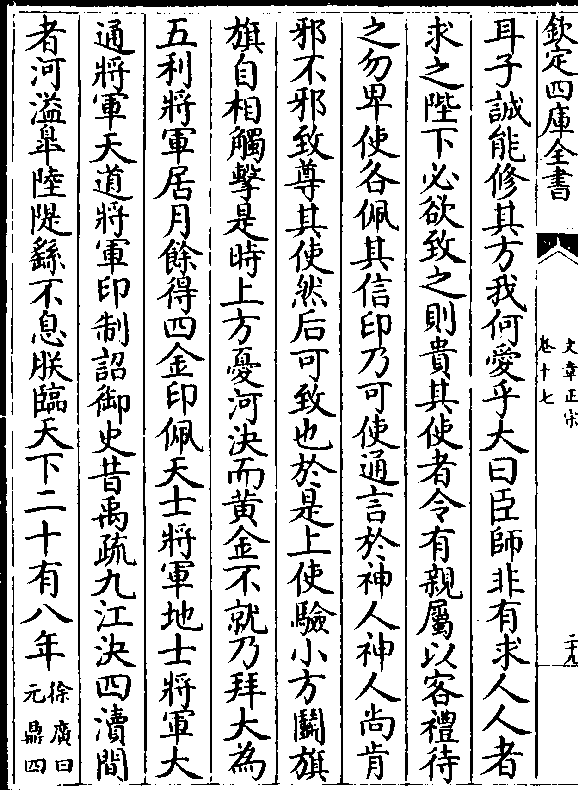 欽定四庫全書
文章正宗
卷十七
二十九
耳子誠能修其方我何愛乎大曰臣師非有求人人者
求之陛下必欲致之則貴其使者令有親屬以客禮待
之勿卑使各佩其信印乃可使通言於神人神人尚肯
邪不邪致尊其使然后可致也於是上使驗小方鬬旗
旗自相觸擊是時上方憂河決而黄金不就乃拜大為
五利將軍居月餘得四金印佩天士將軍地士將軍大
通將軍天道將軍印制詔御史昔禹疏九江決四瀆間
者河溢臯陸隄繇不息朕臨天下二十有八年徐廣曰
元鼎四